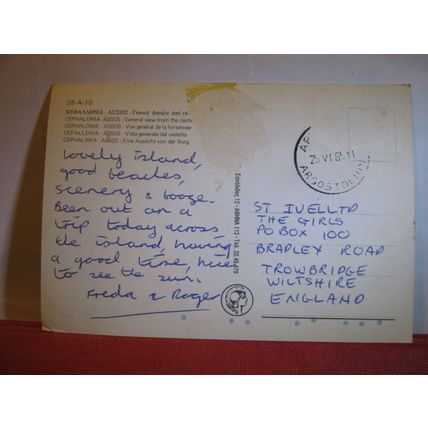 26-A-10
ΚΕΦΑΛΛΗΝΙΑ - ΑΣΣΟΣ - Γενική άποψις ἀπό
CEPHALONIA - ASSOS - General view from the castle
CEPHALONIE - ASSOS - Vue général de la forteresse
CEFALLENIA - ASSOS - Vista generale dal castello
CEPHALINIA - ASSOS - Eine Aussicht von der Burg
Lovely island,
good beaches,
scenery & booze.
Been out on a
trip today across
the island, having
a good time, nice
to see the sun.
Freda & Roger
12 - ΑΘΗΝΑ 112 - Τηλ.
ARGOSTOLION
ST IVEL LTD
THE GIRLS
PO BOX 100
BRADLEY ROAD
TROWBRIDGE
WILTSHIRE
ENGLAND